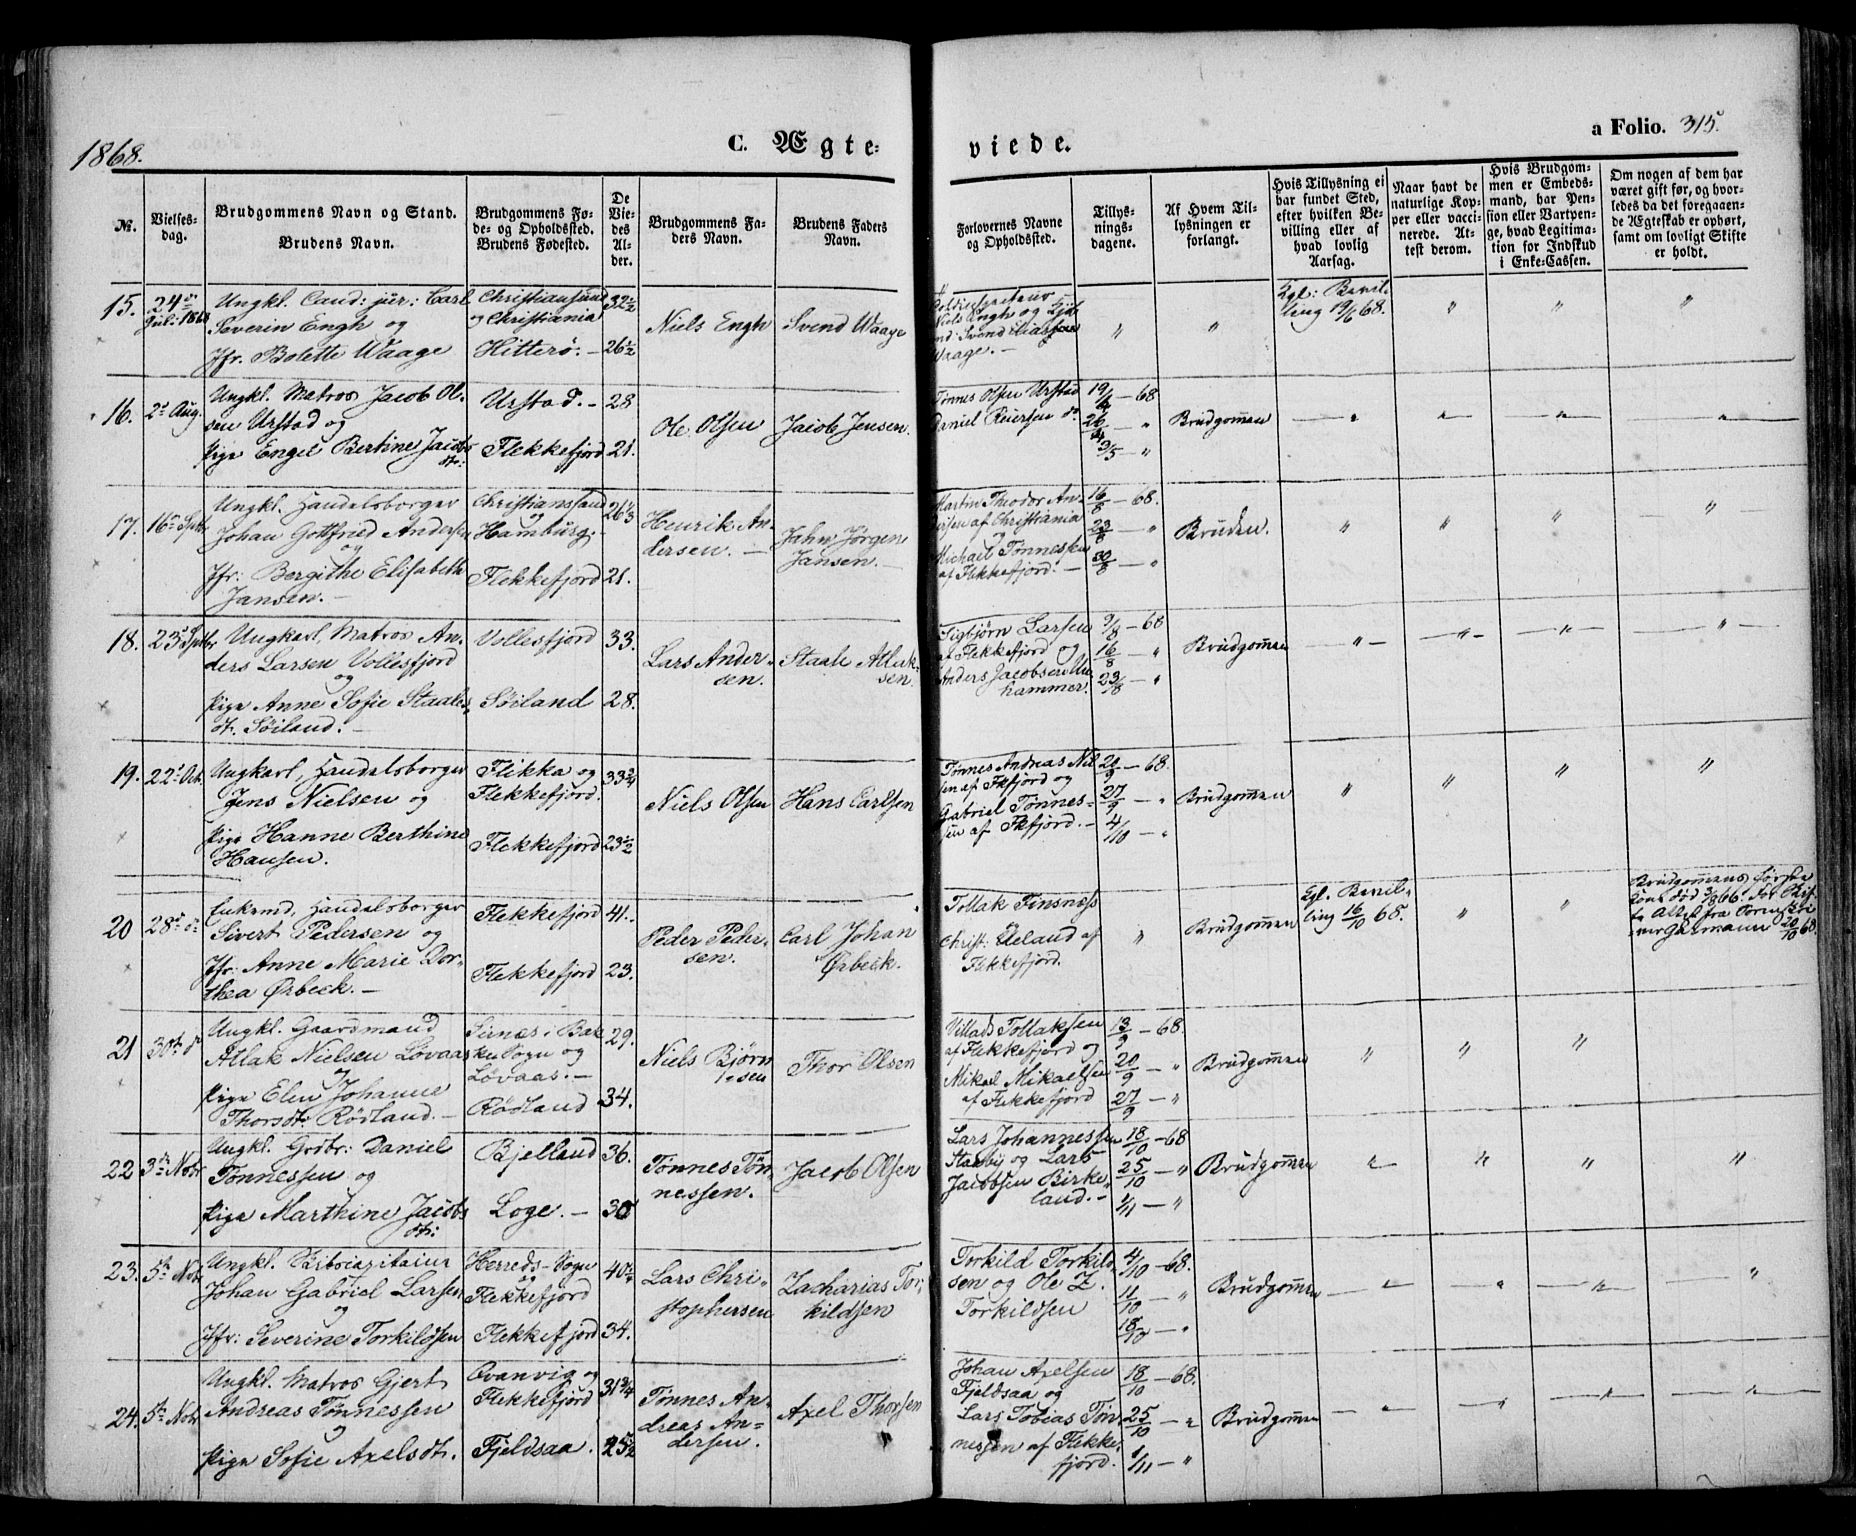 1868.
C. Ægte=
viede.
a Folio. 315.
No.
Vielses-
dag.
Brudgommens Navn og Stand.
Brudens Navn.
Brudgommens Fø-
de- og Opholdssted.
Brudens Fødested.
De
Vie-
des
Al-
der.
Brudgommens Fa-
ders Navn.
Brudens Faders
Navn.
Forlovernes Navne
og Opholdssted.
Tillys-
nings-
dagene.
Af Hvem Til-
lysningen er
forlangt.
Hvis Tillysning ei
har fundet Sted,
efter hvilken Be-
villing eller af
hvad lovlig
Aarsag.
Naar havt de
naturlige Kop-
per eller vacci-
nerede. At-
test derom.
Hvis Brudgom-
men er Embeds-
mand, har Pen-
sion eller Vartpen-
ge, hvad Legitima-
tion for Indskud
i Enke-Cassen.
Om nogen af dem har
været gift før, og hvor-
ledes da det foregaaen-
de Ægteskab er ophørt,
samt om lovligt Skifte
er holdt.
15.
24de
Juli 1868
Ungkl. Cand: jur: Carl
Severin Engh og
Jfr. Bolette Waage
Christiansund
og Christiania
Hitterø. —
32½
26½
Niels Engh
Svend Waage
Niels Engh og Kjø
md: Svend Eliassen
Waage. —
"
"
Kgl: Bevil-
ling 19/6 68.
"
"
"
16.
2d Aug.
Ungkl. Matros Jacob Ol-
sen Urstad og
Pige Engel Bertine Jacobs
dtr:
Urstad. —
Flekkefjord
28
21.
Ole Olsen
Jacob Jensen.
Tønnes Olsen Urstad
Daniel Reiersen do.
19/4 — 68
26/4 — "
3/5 — "
Brudgommen
— " —
"
"
"
17.
16de Septbr
Ungkl. Handelsborger
Johan Gottfried Andersen
og
Jfr: Bergithe Elisabeth
Jansen. —
Christianssand
og
Hamburg. —
Flekkefjord
26⅓
21.
Henrik An-
dersen. —
Jahn Jørgen
Jansen. —
Martin Theodor An-
dersen af Christiania
og
Michael Tønnessen
af Flekkefjord. —
16/8 — 68.
23/8 — "
30/8 — "
Bruden.
"
"
"
"
18.
23d Septbr
Ungkarl, Matros An-
ders Larsen Vollesfjord
og
Pige Anne Sofie Staales-
dt. Søiland.
Vollesfjord
Søiland
33.
28.
Lars Ander-
sen.
Staale Atlak-
sen.
Sigbjørn Larsen
af Flekkefjord og
Anders Jacobsen
hammer.
9/8 — 68
16/8 — "
23/8 — "
Brudgommen
— " —
"
"
"
19.
22d Oct.
Ungkarl, Handelsborger
Jens Nielsen og
Pige Hanne Berthine
Hansen.
Flikka og
Flekkefjord.
Flekkefjord
33¾
23½
Niels Olsen
Hans Carlsen
Tønnes Andreas Niel-
sen af Fkfjord og
Gabriel Tønnes-
sen af Fkfjord. —
20/9 — 68.
27/9 — "
4/10 — "
Brudgommen
"
"
"
"
20
28d do
Enkemd, Handelsborger
Sivert Pedersen og
Jfr: Anne Marie Dor-
thea Ørbeck. —
Flekkefjord
Flekkefjord
41.
23.
Peder Peder-
sen.
Carl Johan
Ørbeck.
Tollak Tinsnæss
og
Christ: Ueland af
Flekkefjord.
"
Brudgommen
Kgl. Bevil-
ling 16/10 68.
"
"
Brudgommens første
Kone død 3/8 66.
20/10 68.
21
30te do
Ungkl. Gaardmand
Atlak Nielsen Lovaas
og
Pige Elen Johanne
Thorsdt: Rødland. —
Sirnæs i Bak-
ke Sogn og
Lovaas. —
Rødland
29.
34.
Niels Bjørn
sen
Thor Olsen
Villads Tollaksen
af Flekkefjord og
Mikael Mikaelsen
af Flekkefjord
13/9 — 68.
20/9 — "
27/9 — "
Brudgommen
"
"
"
"
22
3die Novbr
Ungkl. Grdbr: Daniel
Tønnessen og
Pige Marthine Jacobs
dtr:
Bjelland
Loge. —
36.
30
Tønnes Tøn-
nessen.
Jacob Olsen
Lars Johannessen
og Lars
Jacobsen Birke-
land. —
18/10 — 68
25/10 — "
1/11 — "
Brudgommen
"
"
"
"
23.
5te Novbr
Ungkl.
Johan Gabriel Larsen
og
Jfr: Severine Torkildsen
Herreds-Sogn
og
Flekkefjord
Flekkefjord
40½
34.
Lars Chri-
stophersen
Zacharias Tor-
kildsen
Torkild Torkild-
sen og Ole Z.
Torkildsen
4/10 — 68.
11/10 — "
18/10 — "
Brudgommen
— " —
"
"
"
24.
5te Novbr
Ungkl. Matros Gjert
Andreas Tønnessen
og
Pige Sofie Axelsdt.
Qvanvig og
Flekkefjord
Fjeldsaa.
31¾
25½
Tønnes An-
dreas An-
dersen.
Axel Thorsen
Johan Axelsen
Fjeldsaa og
Lars Tobias Tøn-
nessen af Flekke-
fjord.
18/10 — 68.
25/10 — "
1/11 — "
Brudgommen
— " —
"
"
"